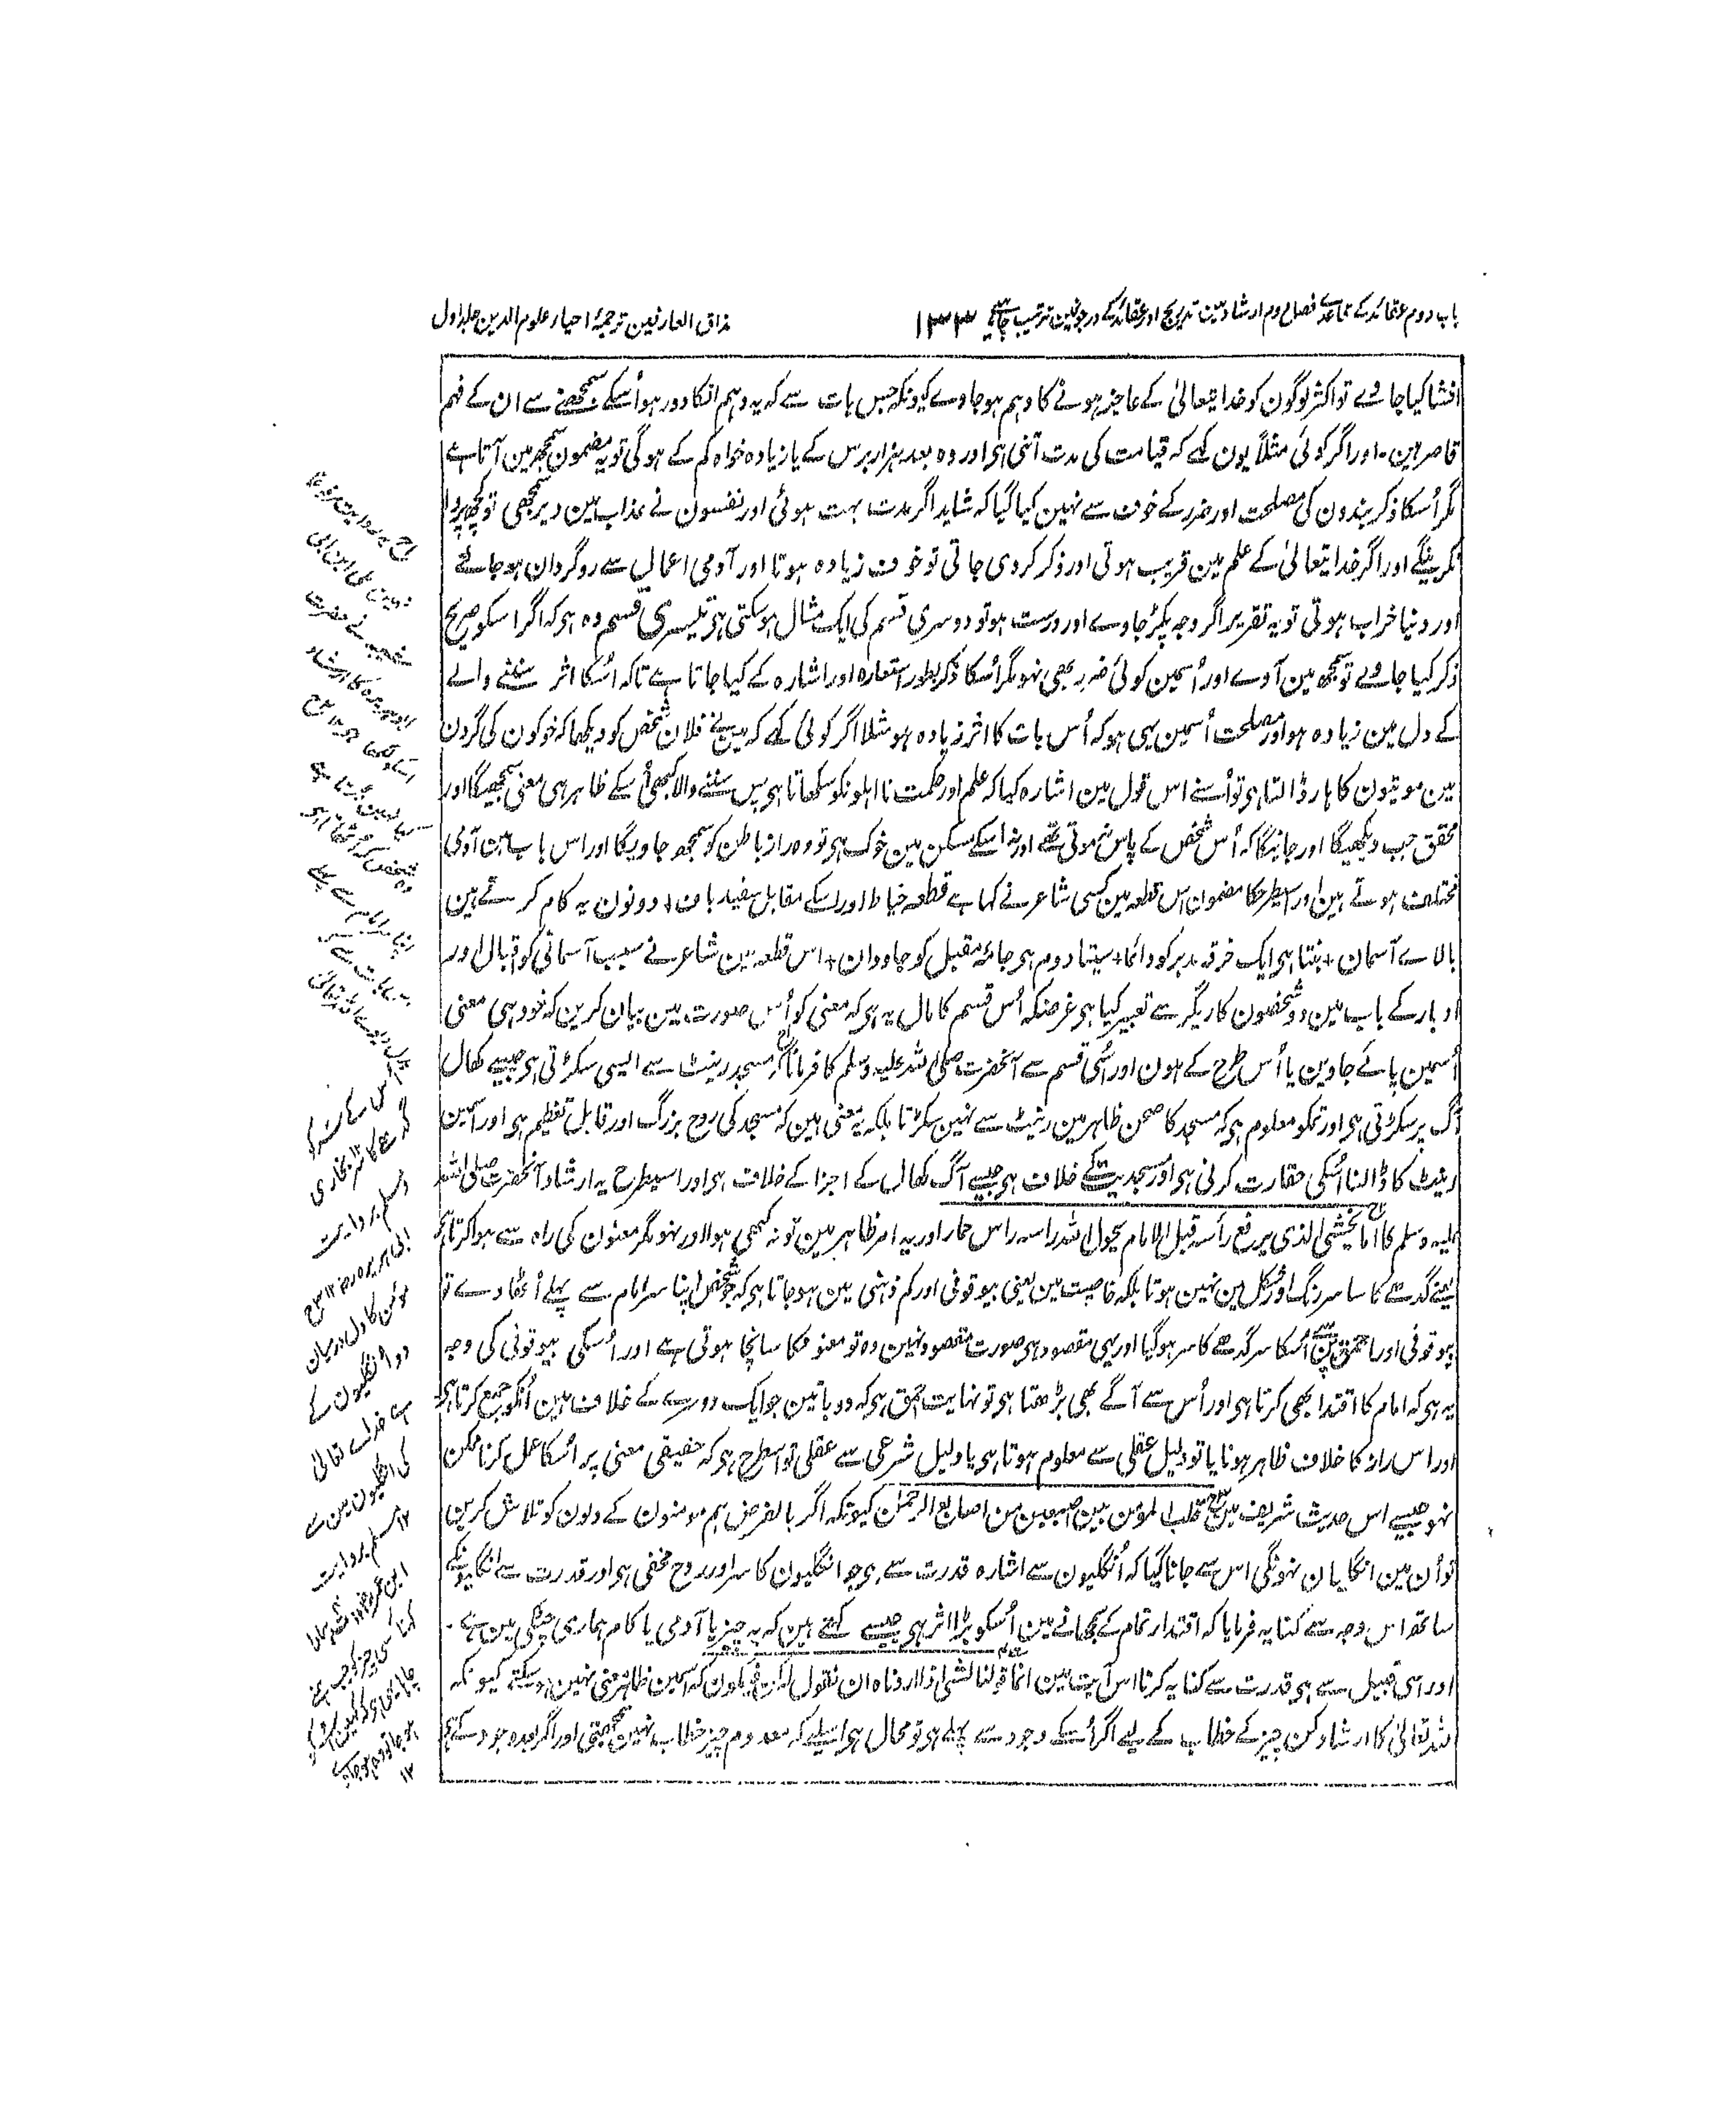 باب دوم عقائد کے قاعدے فصل دوم ارشاد مین تدریج اور عقائد کے درجونمین ترتیب چاہیے
۱۳۳
مذاق العارفین ترجمۂ احیاء علوم الدین جلد اول
افشا کیا جاوے تو اکثر لوگون کو خدا یتعالیٰ کے عاجز ہونے کا وہم ہو جاوے کیونکہ جس بات سے کہ یہ وہم انکا دور ہو اُسکے سمجھنے سے ان کے فہم
قاصر ہین۔ اور اگر کوئی مثلاً یون کہے کہ قیامت کی مدت اتنی ہی اور وہ بعد ہزار برس کے یا زیادہ خواہ کم کے ہوگی تو یہ مضمون سمجھ مین آتا ہے
مگر اُسکا ذکر بندون کی مصلحت اور ضرر کے خوف سے نہین کیا گیا کہ شاید اگر مدت بہت ہوئی اور نفسون نے عذاب مین دیر سمجھی تو کچھ پروا
نکرینگے اور اگر خدا یتعالیٰ کے علم مین قریب ہوتی اور ذکر کر دی جاتی تو خوف زیادہ ہوتا اور آدمی اعمال سے روگردان ہو جاتے
اور دنیا خراب ہوتی تو یہ تقریر اگر وجہ پکڑ جاوے اور درست ہو تو دوسری قسم کی ایک مثال ہو سکتی ہی تیسری قسم وہ ہی کہ اگر اسکو صریح
ذکر کیا جاوے تو سمجھ مین آوے اور اُسمین کوئی ضرر بھی نہو مگر اُسکا ذکر بطور استعارہ اور اشارہ کے کیا جاتا ہے تاکہ اُسکا اثر سننے والے
کے دل مین زیادہ ہو اور مصلحت اُسمین یہی ہو کہ اُس بات کا اثر زیادہ ہو مثلا اگر کوئی کہے کہ مینے فلان شخص کو دیکھا کہ خوکون کی گردن
مین موتیون کا ہار ڈالتا ہی تو اُسنے اس قول مین اشارہ کیا کہ علم اور حکمت نا اہلونکو سکھاتا ہی پس سننے والا کبھی اُسکے ظاہر ہی معنی سمجھیگا اور
محقق جب دیکھیگا اور جانیگا کہ اُس شخص کے پاس نہ موتی تھے اور نہ اسکے مسکن مین خوک ہی تو وہ راز باطن کو سمجھ جاویگا اور اس باب مین آدمی
مختلف ہوتے ہین اور اسیطرحکا مضمون اس قطعہ مین کسی شاعر نے کہا ہے قطعہ خیاط اور اسکے مقابل سفید باف + دونون یہ کام کرتے ہین
بالاے آسمان + بنتا ہی ایک خرقہ مدبر کو دائما + سیتا دوم ہی جامۂ مقبل کو جاودان + اس قطعہ مین شاعر نے سبب آسمانی کو اقبال اور
ادبار کے باب مین دو شخصون کاریگر سے تعبیر کیا ہی غرضکہ اُس قسم کا مال یہ ہی کہ معنی کو اُس صورت مین بیان کرین کہ خود ہی معنی
اُسمین پائے جاوین یا اُس طرح کے ہون اور اسی قسم سے آنحضرت صلی اللہ علیہ وسلم کا فرمانا کہ مسجد رینٹ سے ایسی سکڑتی ہی جیسے کھال
آگ پر سکڑتی ہی اور تمکو معلوم ہی کہ مسجد کا صحن ظاہر مین رینٹ سے نہین سکڑتا بلکہ یہ معنی ہین کہ مسجد کی روح بزرگ اور قابل تعظیم ہی اور اسمین
رینٹ کا ڈالنا اُسکی حقارت کرنی ہی اور مسجدیت کے خلاف ہی جیسے آگ کھال کے اجزا کے خلاف ہی اور اسیطرح یہ ارشاد آنحضرت صلی اللہ
علیہ وسلم کا اما یخشی الذی یرفع رأسہ قبل الامام یحول اللہ راسہ راس حمار اور یہ امر ظاہر مین تو نہ کبھی ہوا اور نہو مگر معنون کی راہ سے ہوا کرتا ہی
یعنے گدھے کا سا سر رنگ اور شکل مین نہین ہوتا بلکہ خاصیت مین یعنی بیوقوفی اور کم ذہنی مین ہو جاتا ہی کہ جو شخص اپنا سر امام سے پہلے اُٹھاوے تو
بیوقوفی اور احمق پن مین اُسکا سر گدھے کا سر ہو گیا اور یہی مقصود ہی صورت مقصود نہین وہ تو معنونکا سانچا ہوتی ہے اور اُسکی بیوقوفی کی وجہ
یہ ہی کہ امام کا اقتدا بھی کرتا ہی اور اُس سے آگے بھی بڑھتا ہی تو نہایت احمق ہی کہ دو باتین جو ایک دوسرے کے خلاف ہین اُنکو جمع کرتا ہی
اور اس راز کا خلاف ظاہر ہونا یا تو دلیل عقلی سے معلوم ہوتا ہی یا دلیل شرعی سے عقلی تو اسطرح ہی کہ حقیقی معنی پر اُسکا عمل کرنا ممکن
نہو جیسے اس حدیث شریف مین قلب المؤمن بین اصبعین من اصابع الرحمٰن کیونکہ اگر بالفرض ہم مومنون کے دلون کو تلاش کرین
تو اُن مین انگلیان نہونگی اس سے جانا گیا کہ اُنگلیون سے اشارہ قدرت سے ہی جو انگلیون کا سر اور روح مخفی ہی اور قدرت سے انگلیونکے
ساتھ اس وجہ سے کنایہ فرمایا کہ اقتدار تمام کے سمجھانے مین اُسکو بڑا اثر ہی جیسے کہتے ہین کہ یہ چیز یا آدمی یا کام ہماری چٹکی مین ہے۔
اور اسی قبیل سے ہی قدرت سے کنایہ کرنا اس آیت مین انما قولنا لشئ اذا اردناہ ان نقول لہ کن فیکون کہ اسمین ظاہر معنی نہین ہو سکتے کیونکہ
اللہ تعالیٰ کا ارشاد کن چیز کے خطاب کے لیے اگر اُسکے وجود سے پہلے ہی تو محال ہی اسلیے کہ معدوم چیز خطاب نہین سمجھتی اور اگر بعد وجود کے ہی
شیبہ نے حضرت
ابو ہریرہ کا ارشاد
کیا نہین ڈرتا ہے
اپنا سر امام سے پہلے
گدھے کا سر ۱۲ بخاری
ومسلم بروایت
ابی ہریرہ رضہ ۱۲
مومن کا دل درمیان
دو اُنگلیون کے
ہے خداے تعالیٰ
کی انگلیون مین سے
۱۲ مسلم بروایت
کہنا کسی چیز کو جب ہمنے
۱۲